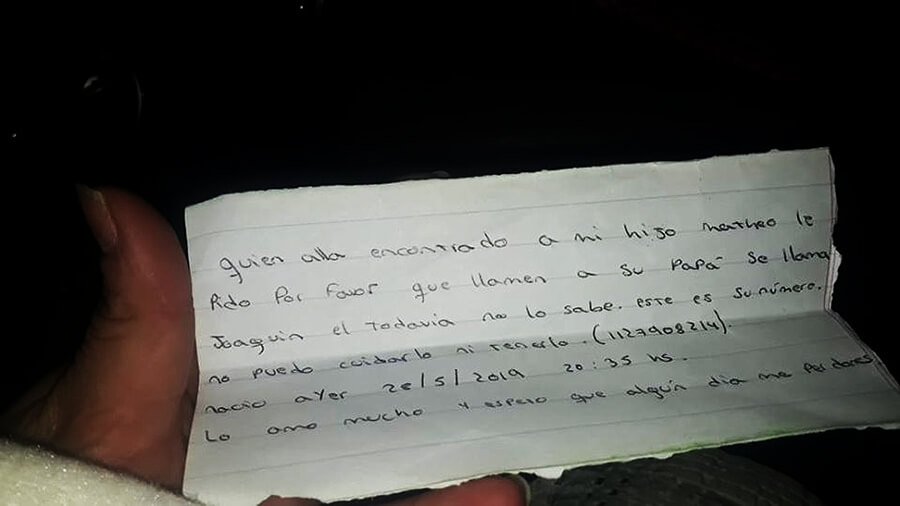 quien alla encontrado a mi hijo matheo le
Pido Por favor que llamen a su PaPá se llama
Joaquin el todavia no lo sabe. este es su número.
no puedo cuidarlo ni tenerlo. (1127908214).
nacio ayer 28/5/2019 20:35 hs.
Lo amo mucho y espero que algún dia me perdones